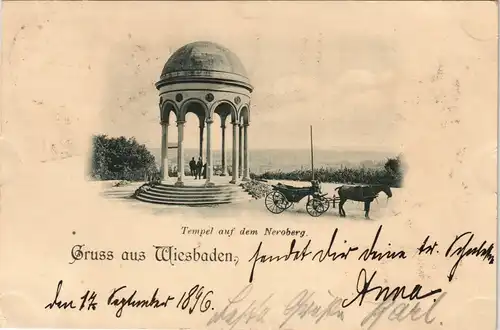 Tempel auf dem Neroberg.
Gruss aus Wiesbaden, sendet Dir deine tr.
Anna
den 17 September 1896.
Beste Grüße Karl